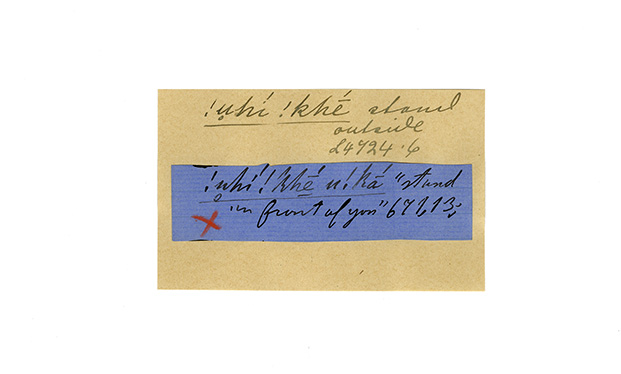 !u̥hí !khé stand
outside
L4724.6
!u̥hí !khé u !ká "stand
in front of you" 671,13;